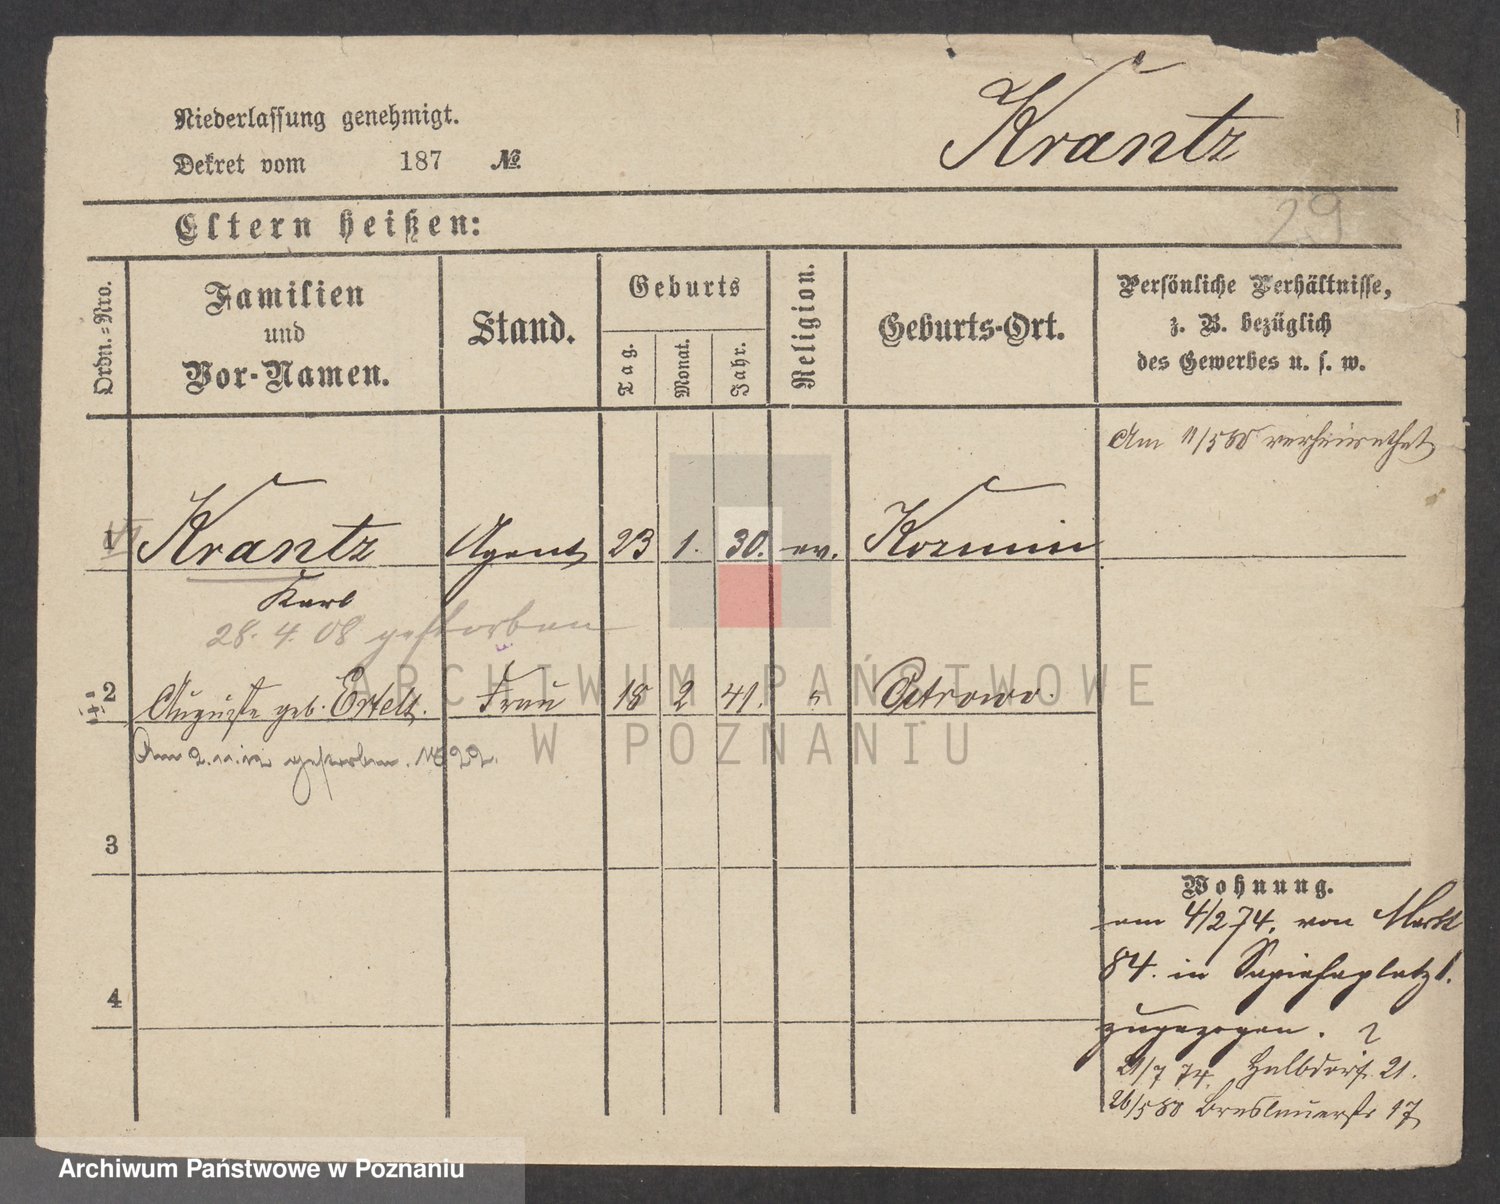 Niederlassung genehmigt.
Krantz
Dekret vom 187 №
29
Eltern heißen:
Ordn.=Nro.
Familien
und
Vor-Namen.
Stand.
Geburts
Tag.
Monat.
Jahr.
Religion.
Geburts-Ort.
Persönliche Verhältnisse,
z. B. bezüglich
des Gewerbes u. s. w.
Am 11/5 80 verheirathet
1 Krantz Agent 23 1. 30. ev. Kozmin
Karl
28. 4. 08 gestorben
2 Auguste geb. Ertelt. Frau 18 2 41. " Ostrowo.
Am 2. 11. 12 gestorben.
3
4
Wohnung.
am 4/2 74. von Markt
84. in Sapiehaplatz 1.
zugezogen.
21/7 74. Halbdorfst. 21.
26/5 80 Breslauerstr 17
ARCHIWUM PAŃSTWOWE
W POZNANIU
Archiwum Państwowe w Poznaniu